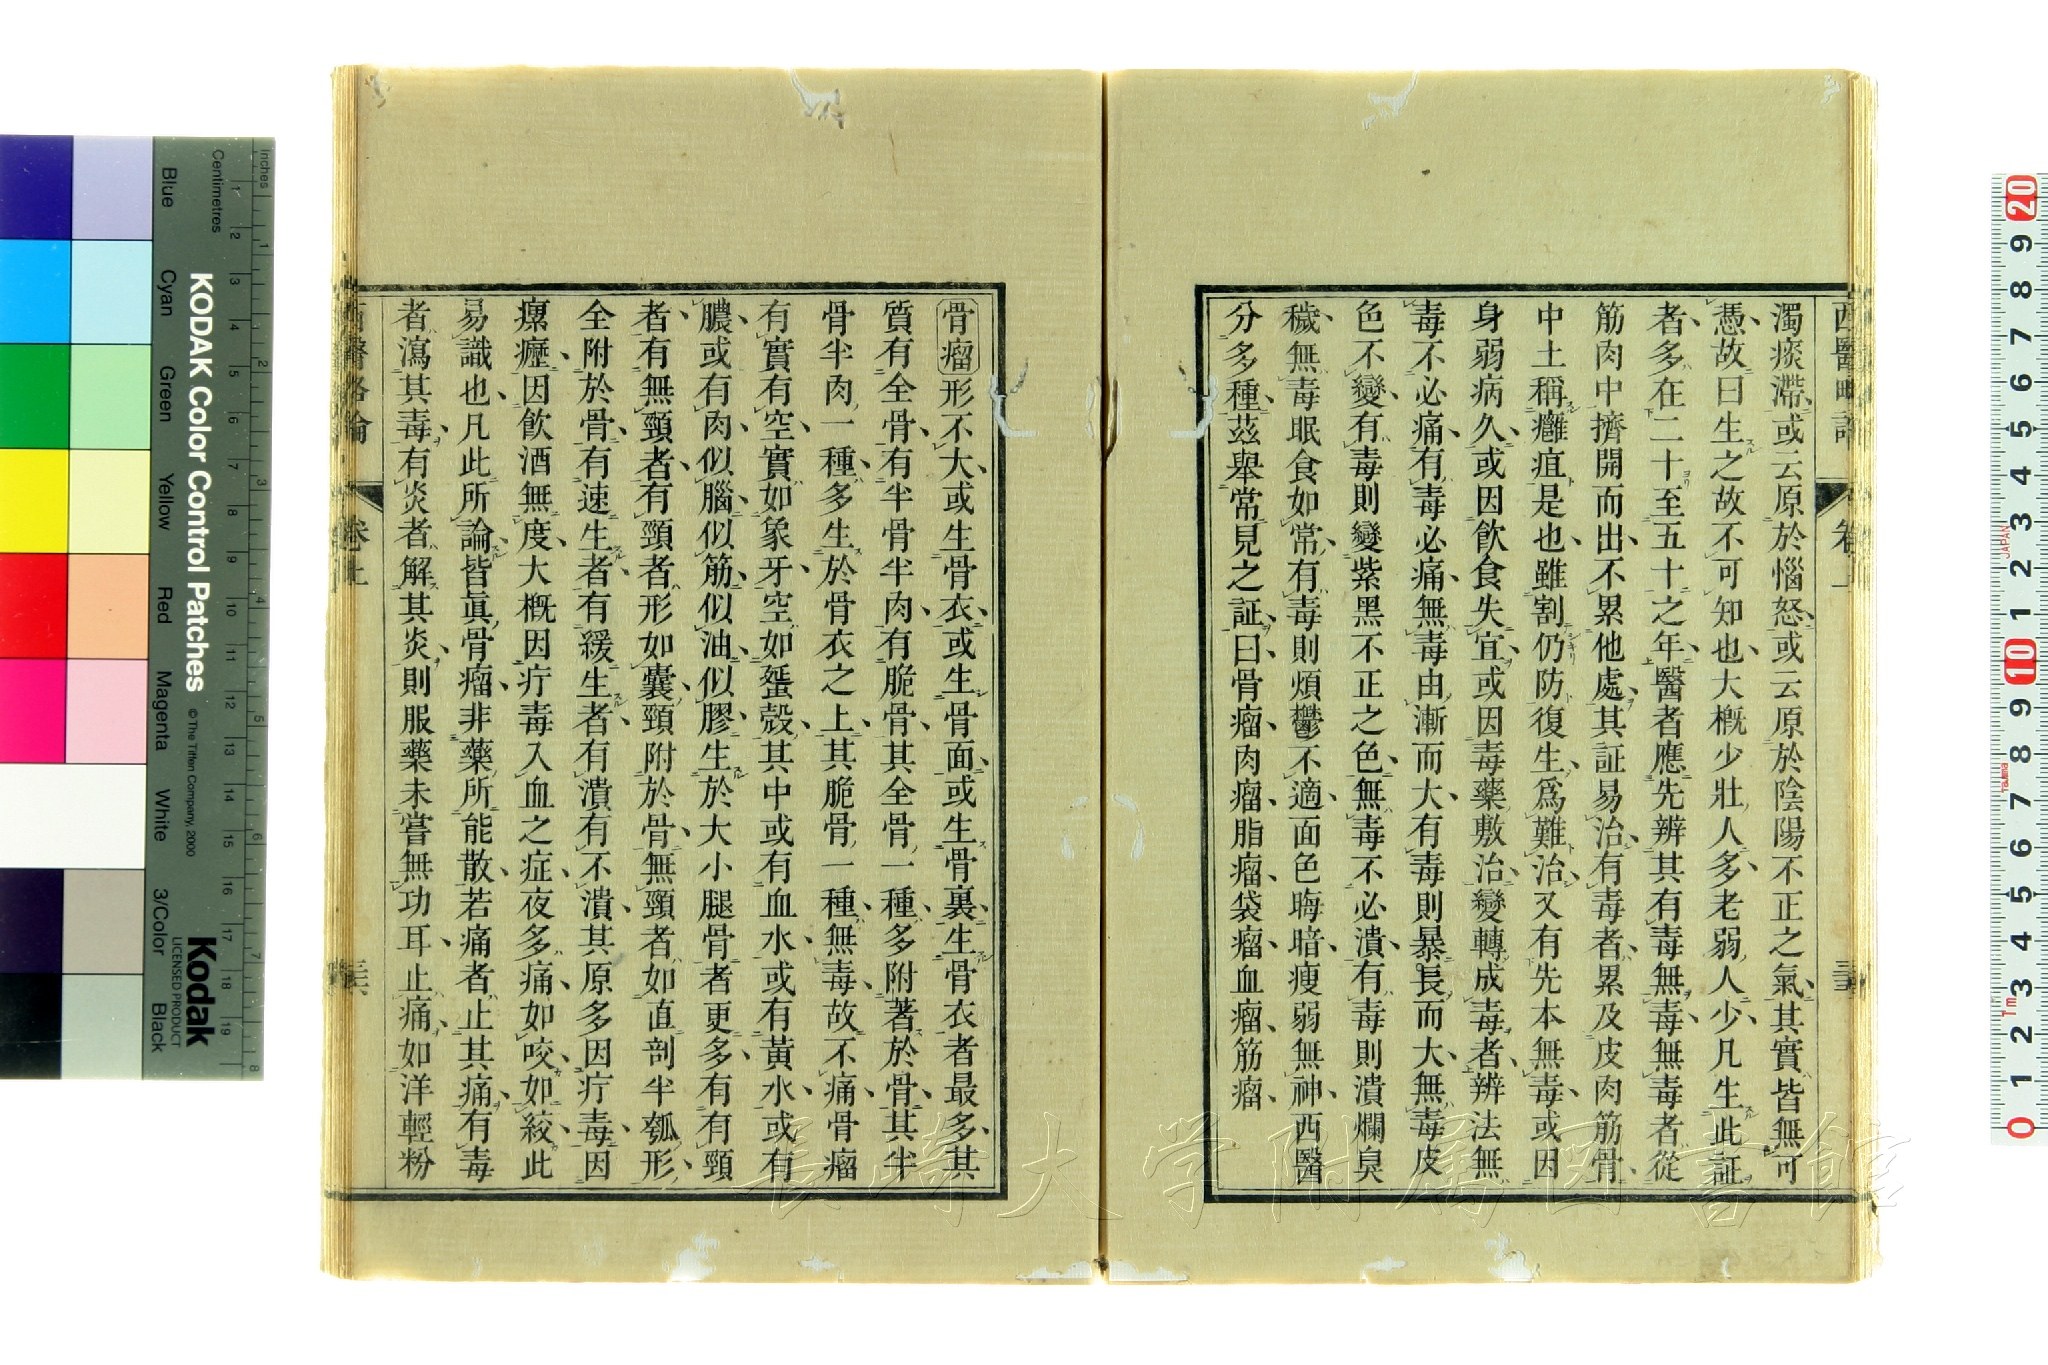 西醫略論
卷上
濁痰滯或云原於惱怒或云原於陰陽不正之氣其實皆無可
憑故曰生之故不可知也大概少壯人多老弱人少凡生此証
者多在二十至五十之年醫者應先辨其有毒無毒無毒者從
筋肉中擠開而出不累他處其証易治有毒者累及皮肉筋骨
中土稱癰疽是也雖割仍防復生爲難治又有先本無毒或因
身弱病久或因飲食失宜或因毒藥敷治變轉成毒者辨法無
毒不必痛有毒必痛無毒由漸而大有毒則暴長而大無毒皮
色不變有毒則變紫黑不正之色無毒不必潰有毒則潰爛臭
穢無毒眠食如常有毒則煩鬱不適面色晦暗瘦弱無神西醫
分多種茲舉常見之証曰骨瘤肉瘤脂瘤袋瘤血瘤筋瘤
骨瘤形不大或生骨衣或生骨面或生骨裏生骨衣者最多其
質有全骨有半骨半肉有脆骨其全骨一種多附著於骨其半
骨半肉一種多生於骨衣之上其脆骨一種無毒故不痛骨瘤
有實有空實如象牙空如蜑殼其中或有血水或有黃水或有
膿或有肉似腦似筋似油似膠生於大小腿骨者更多有有頸
者有無頸者有頸者形如囊頸附於骨無頸者如直剖半瓠形
全附於骨有速生者有緩生者有潰有不潰其原多因疔毒因
瘰癧因飲酒無度大概因疔毒入血之症夜多痛如咬如絞此
易識也凡此所論皆眞骨瘤非藥所能散若痛者止其痛有毒
者瀉其毒有炎者解其炎則服藥未嘗無功耳止痛如洋輕粉
西醫略論
卷上
KODAK Color Control Patches
© The Tiffen Company, 2000
Kodak
LICENSED PRODUCT
Inches
Centimetres
Blue
Cyan
Green
Yellow
Red
Magenta
White
3/Color
Black
JAPAN
長崎大学附属図書館